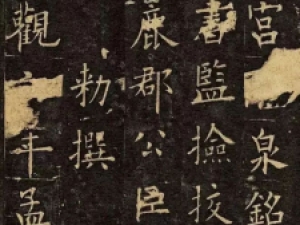 宮泉銘
書監撿挍
鹿郡公臣
勅撰
觀年孟